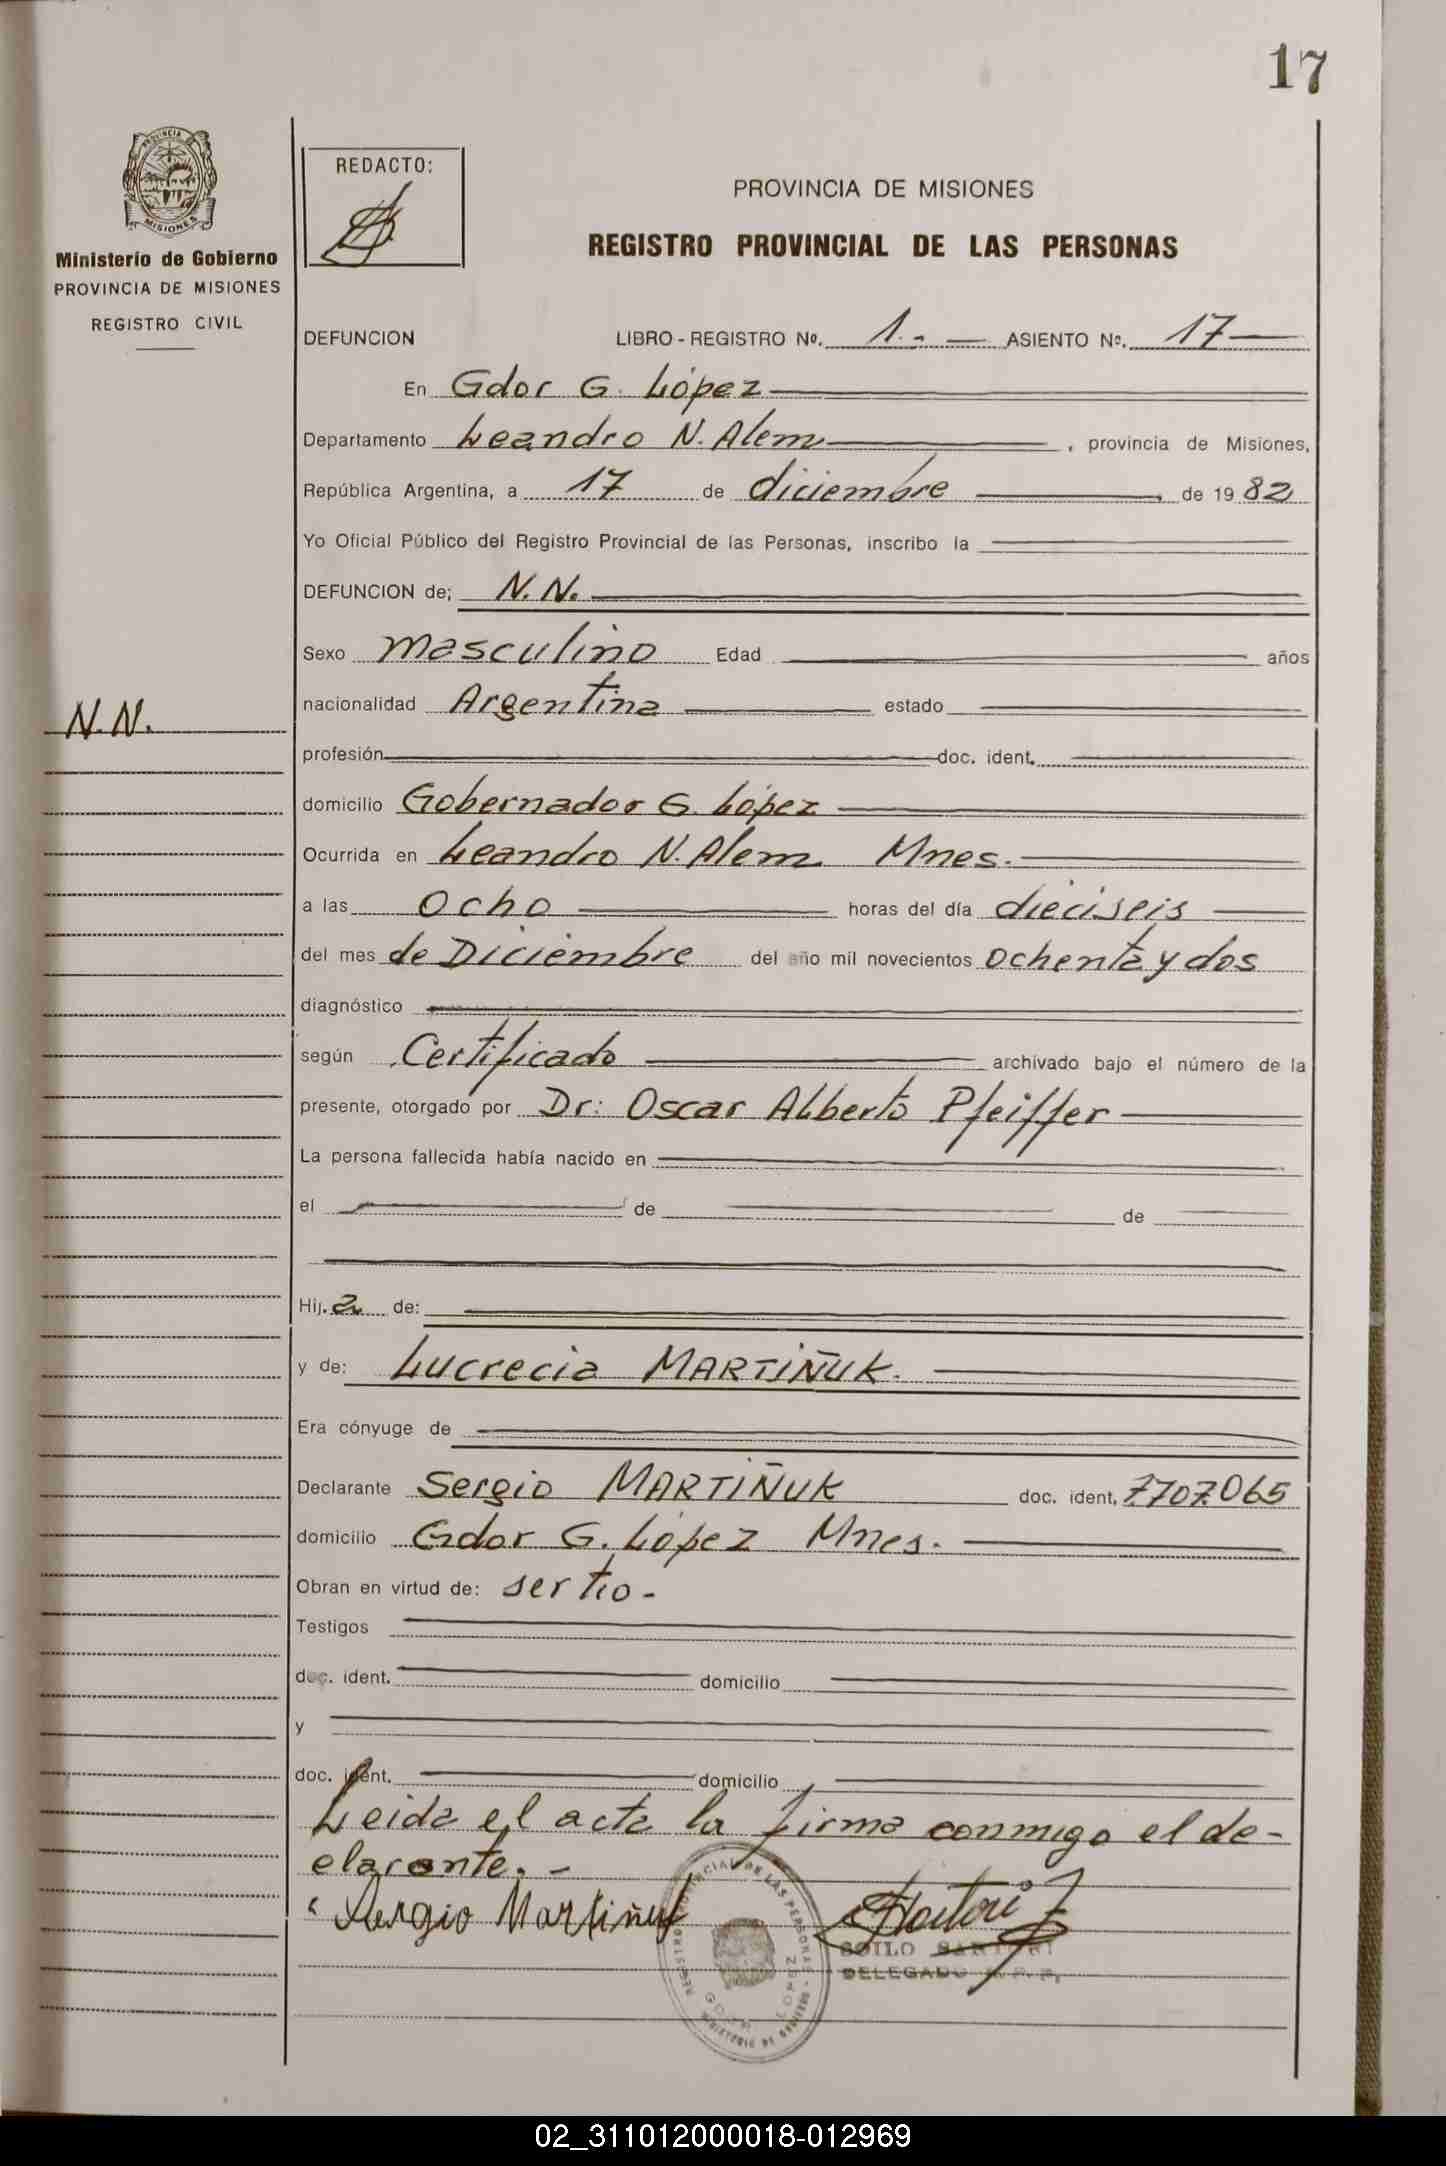 17
PROVINCIA
MISIONES
Ministerio de Gobierno
PROVINCIA DE MISIONES
REGISTRO CIVIL
REDACTO:
PROVINCIA DE MISIONES
REGISTRO PROVINCIAL DE LAS PERSONAS
DEFUNCION LIBRO - REGISTRO Nº. 1.- ASIENTO Nº. 17
En Gdor G. López
Departamento Leandro N. Alem, provincia de Misiones,
República Argentina, a 17 de diciembre de 1982
Yo Oficial Público del Registro Provincial de las Personas, inscribo la
DEFUNCION de; N.N.
Sexo masculino Edad años
N.N.
nacionalidad Argentina estado
profesión doc. ident.
domicilio Gobernador G. López
Ocurrida en Leandro N. Alem Mnes.
a las Ocho horas del día dieciseis
del mes de Diciembre del año mil novecientos ochenta y dos
diagnóstico
según Certificado archivado bajo el número de la
presente, otorgado por Dr: Oscar Alberto Pfeiffer
La persona fallecida había nacido en
el de de
Hij.a de:
y de: Lucrecia MARTIÑUK.
Era cónyuge de
Declarante Sergio MARTIÑUK doc. ident. 7.707.065
domicilio Gdor G. López Mnes.
Obran en virtud de: ser tio -
Testigos
doc. ident. domicilio
y
doc. ident. domicilio
Leida el acta la firma conmigo el de-
clarante. -
Sergio Martiñuk
SOILO SARTORI
DELEGADO R. P. P.
REGISTRO PROVINCIAL DE LAS PERSONAS - MINISTERIO DE GOBIERNO
GDOR LOPEZ
02_311012000018-012969